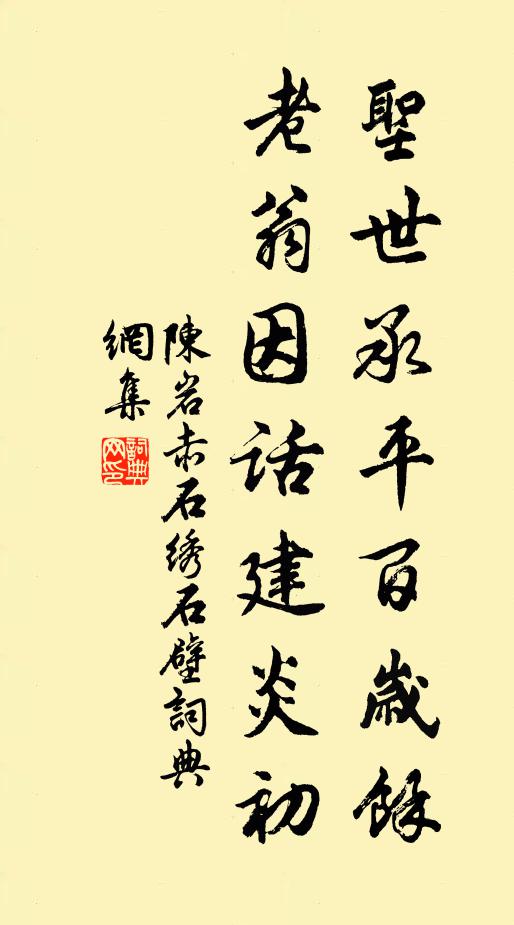 聖世承平百歲餘
老翁因話建炎初
陳岩赤石绣石壁詞典
網集
詞典
网印